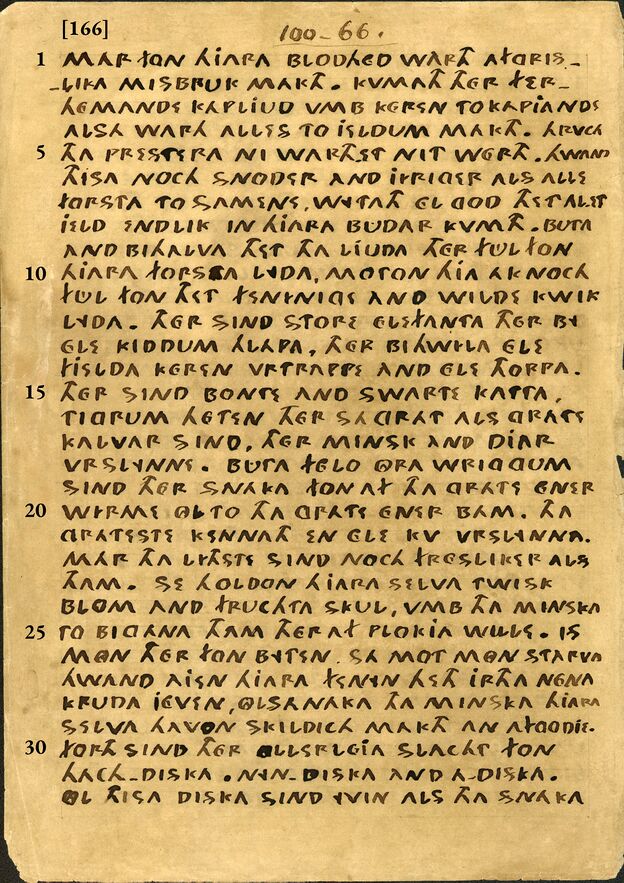 [166]
100-66.
1 MAR FON HIARA BLODHED WARTH AFGRIS_
_LIKA MISBRUK MAKTH. KVMATH THER FER_
HEMANDE KAPLIUD VMB KEREN TO KAPIANDE
ALSA WARTH ALLES TO IELDUM MAKTH. THRVCH
5 THA PRESTERA NI WARTHST NIT WERTH. HWAND
THISA NOCH SNODER AND IFRIGER ALS ALLE
FORSTA TO SAMENE, WYTATH EL GOD THET ALET
IELD ENDLIK IN HIARA BUDAR KVMTH. BUTA
AND BIHALVA THET THA LIUDA THER FUL FON
10 HIARA FORSTA LYDA, MOTON HIA AK NOCH
FUL FON THET FENYNIGE AND WILDE KWIK
LYDA. THER SIND STORE ELEFANTA THER BY
ELE KIDDUM HLAPA, THER BIHWYLA ELE
FIELDA KEREN VRTRAPPE AND ELE THORPA.
15 THER SIND BONTE AND SWARTE KATTA,
TIGRUM HETEN THER SA GRAT ALS GRATE
KALVAR SIND, THER MINSK AND DIAR
VRSLYNNE. BUTA FELO ORA WRIGGUM
SIND THER SNAKA FON AF THA GRATE ENER
20 WYRME OL TO THA GRATE ENER BAM. THA
GRATESTE KENNATH EN ELE KV VRSLYNNA.
MAR THA LYTHSTE SIND NOCH FRESLIKER ALS
THAM. SE HOLDON HIARA SELVA TWISK
BLOM AND FRUCHTA SKUL, VMB THA MINSKA
25 TO BIGANA THAM THER AF PLOKIA WILLE. IS
MON THER FON BYTEN. SA MOT MON STARVA
HWAND AIEN HIARA FENYN HETH IRTHA NENA
KRUDA IEVEN, OLSANAKA THA MINSKA HIARA
SELVA HAVON SKILDICH MAKTH AN AFGODIE.
30 FORTH SIND THER OLLERLEIA SLACHT FON
HACH_DISKA. NYN_DISKA AND A_DISKA.
OL THISA DISKA SIND YVIN ALS THA SNAKA